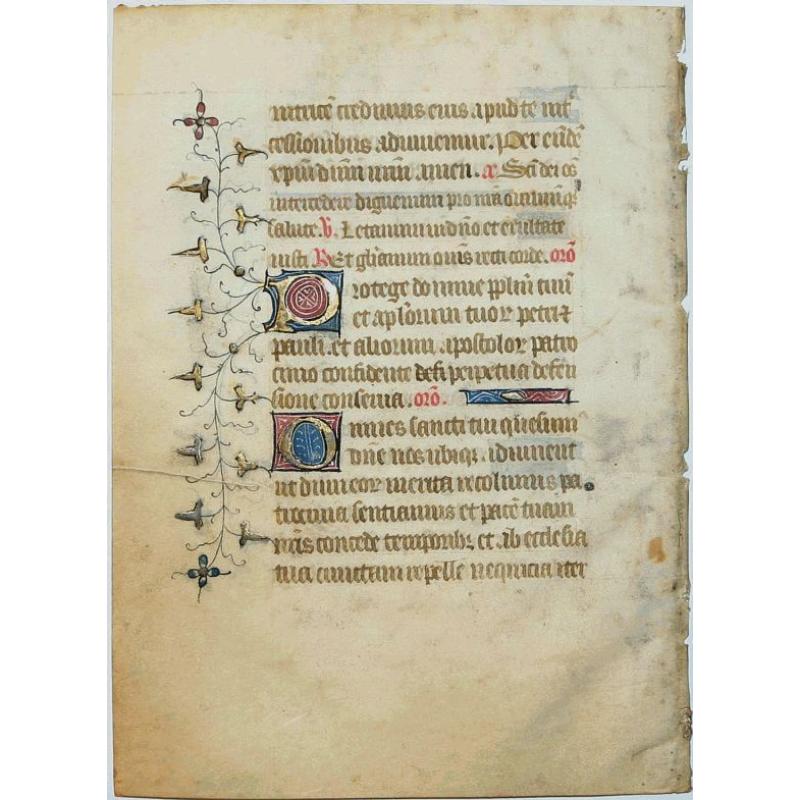 nitricē credimus eius apud te int̄
cessionibus adiuuemur. Per eūdē
xpm̄ dīm nrm̄ amen. a Scī dei oēs
intercedere dignemini pro nrā omniumq;
salute. V̄. Letamini in dn̄o et exultate
iusti. R Et gliamini om̄s recti corde. orō
Protege domine ppl̄m tuū
et apl̄orum tuoꝝ petri ⁊
pauli. et aliorum apostoloꝝ patro
cinio confidente perpetua defen
sione conserua. orō.
Omnes sancti tui quesum̄
dn̄e nos ubiqꝫ adiuuent
ut dum eoꝝ merita recolimus pa
trocinia sentiamus et pacē tuam
nr̄is concede temporibꝫ et ab ecclesia
tua cunctam repelle nequicia iter